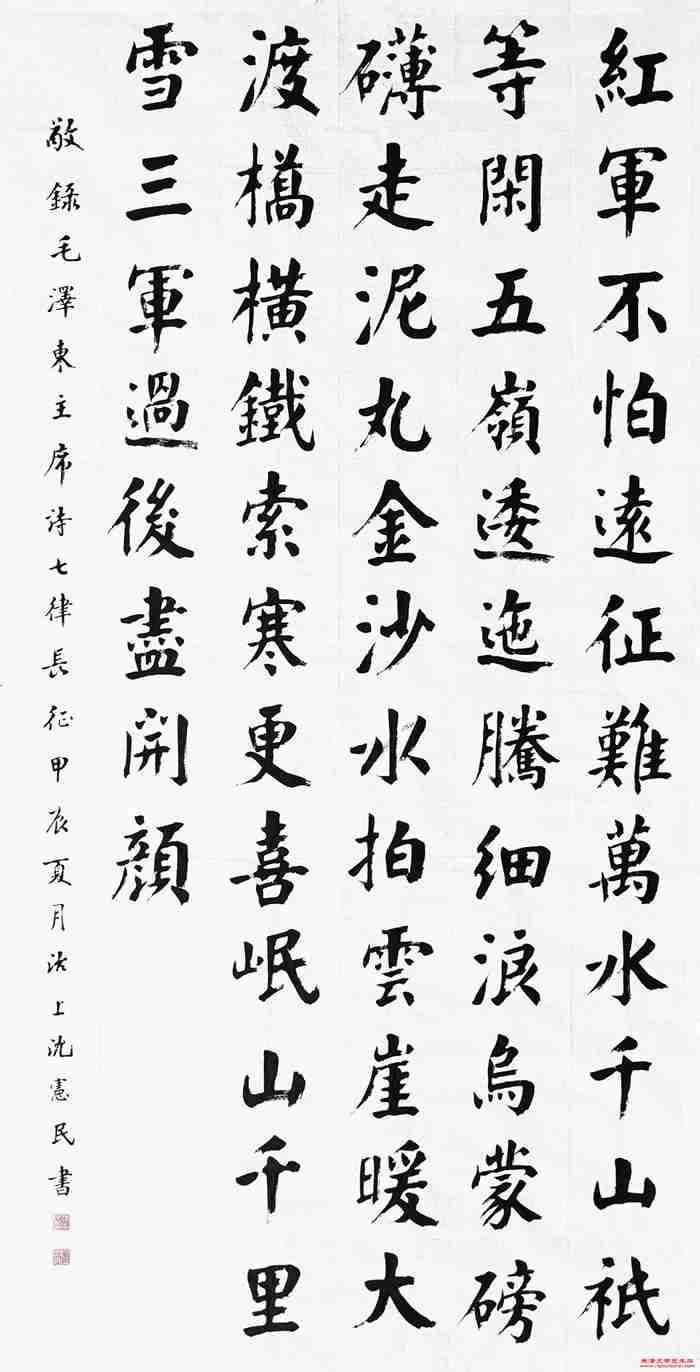 紅軍不怕遠征難萬水千山祇
等閑五嶺逶迤騰細浪烏蒙磅
礴走泥丸金沙水拍雲崖暖大
渡橋橫鐵索寒更喜岷山千里
雪三軍過後盡開顏
敬録毛澤東主席詩七律長征甲辰夏月沽上沈憲民書